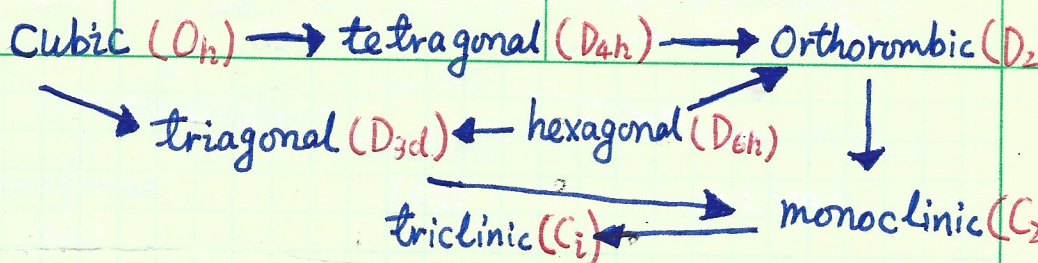 cubic (Oh) → tetragonal (D4h) → Orthorombic (D2
triagonal (D3d) ← hexagonal (D6h)
monoclinic (C2
triclinic (Ci)